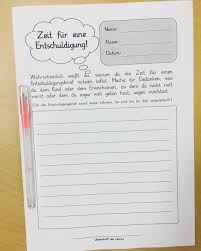 Zeit für eine
Entschuldigung!
Name:
Klasse:
Datum:
Wahrscheinlich weißt du, warum du die Zeit für einen
Entschuldigungsbrief nutzen sollst. Mache dir Gedanken, was
du dem Kind oder dem Erwachsenen, zu dem du nicht nett
warst oder dem du sogar weh getan hast, sagen möchtest.
Unterschrift der Lehrers